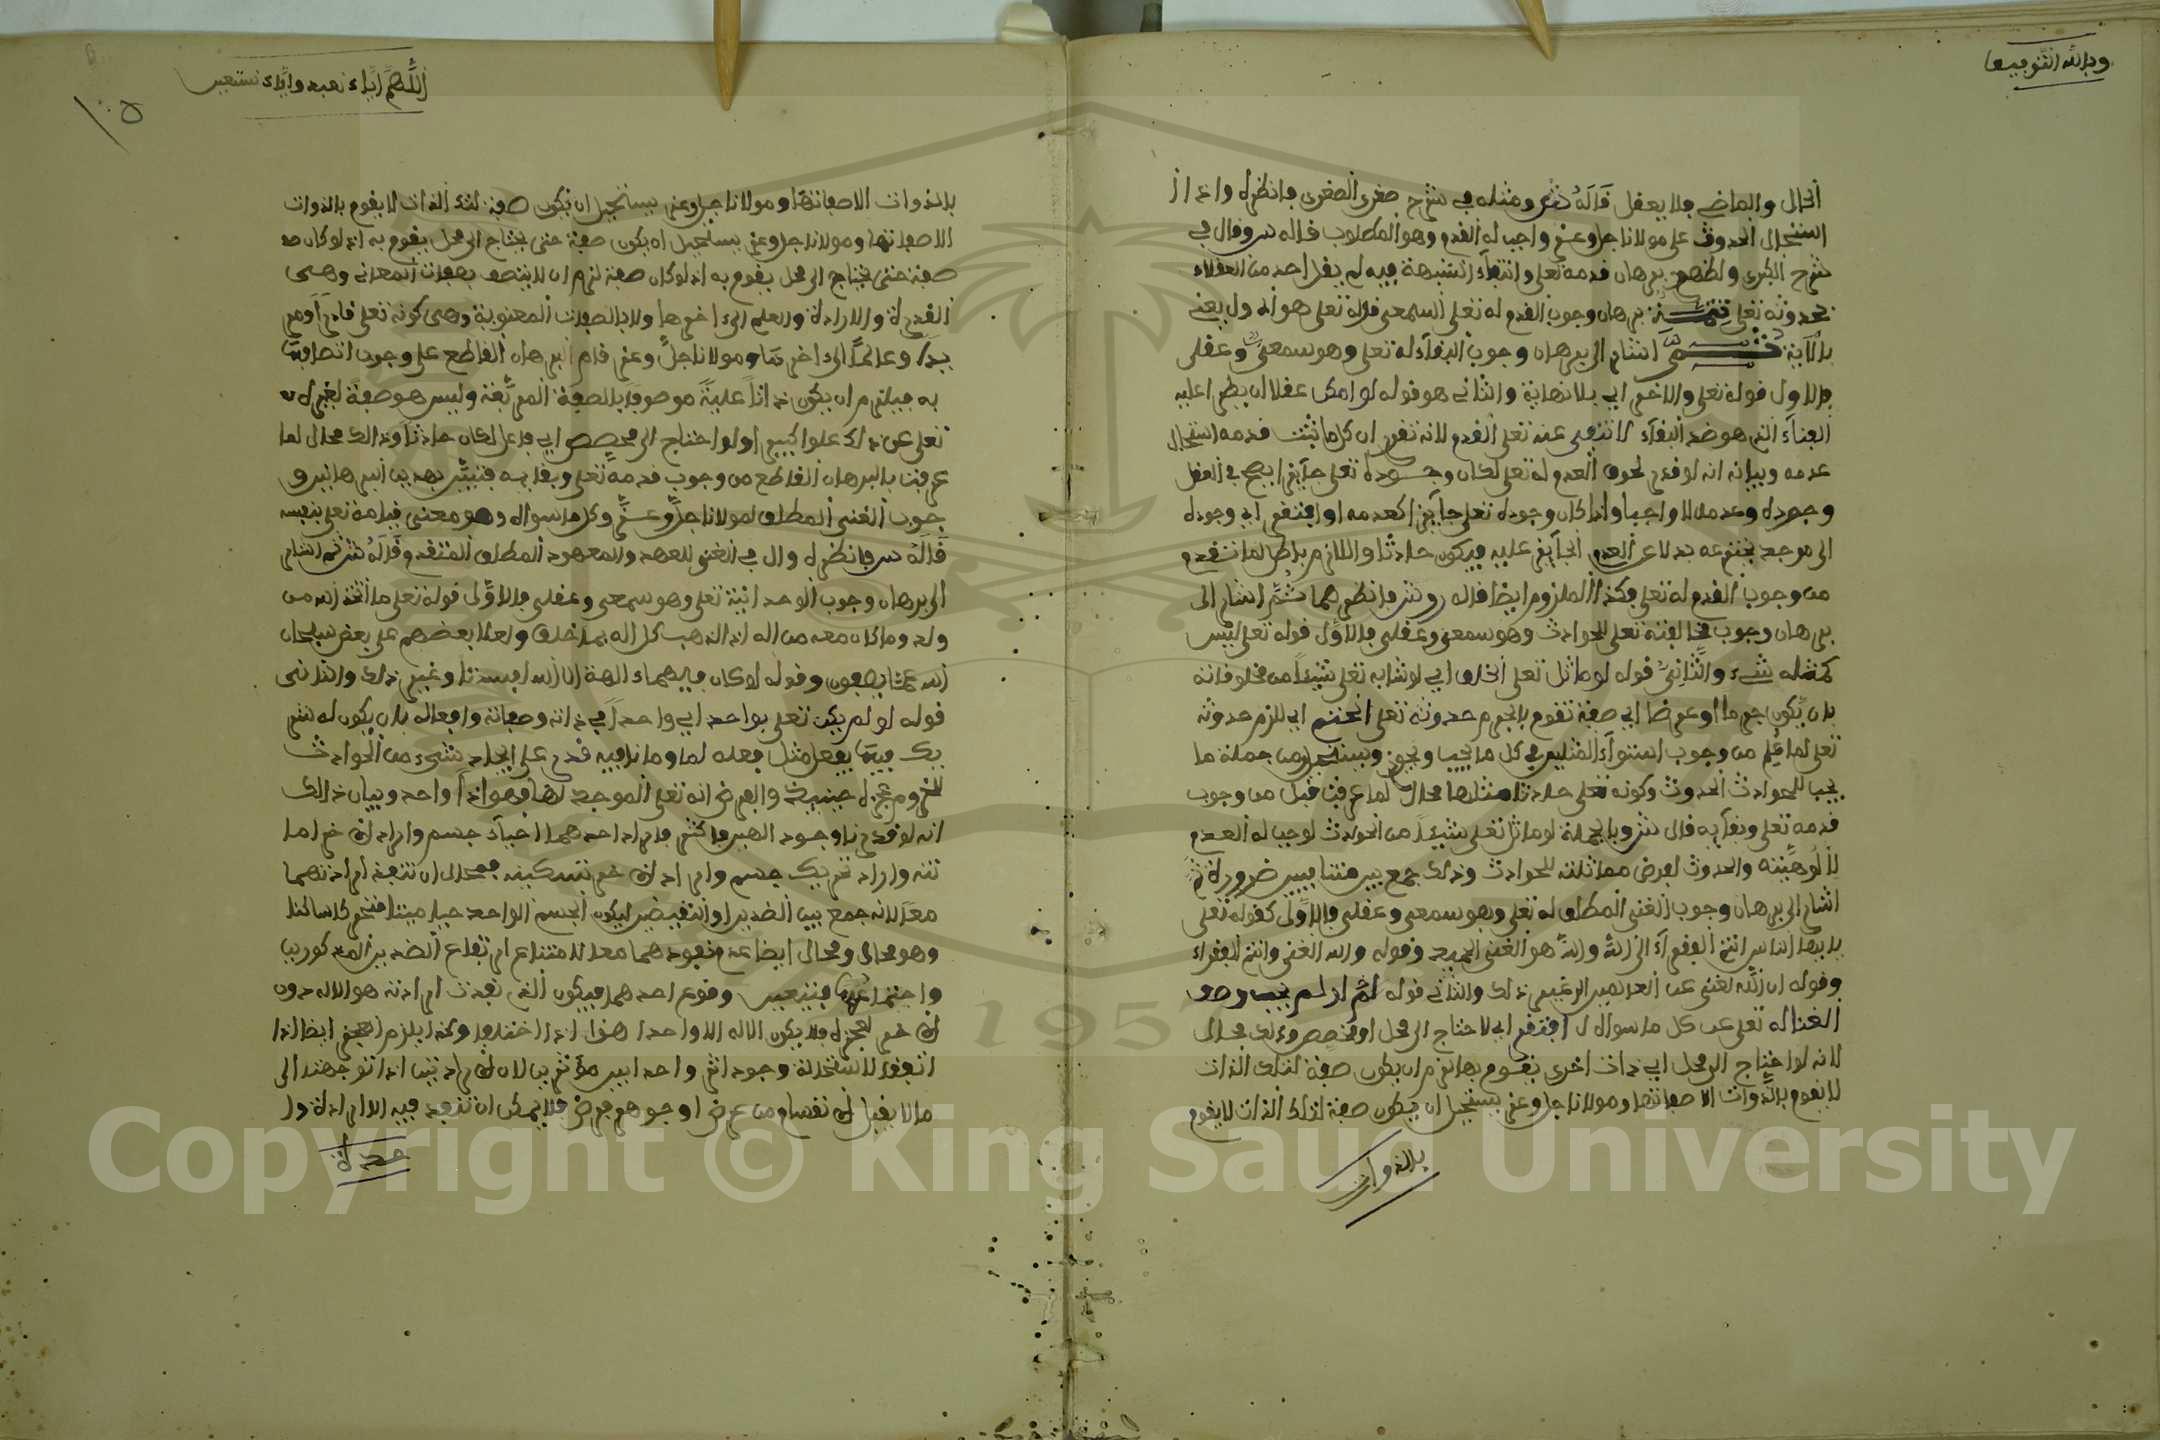 وبالله التوفيق
الحال والماضي فلا يعقل قاله ش ومثله في شرح صغرى الصغرى فانظره واذا
استحال الحدوث على مولانا جل وعز واجب له القدم وهو المطلوب قاله س وقال في
شرح الكبرى ولظهور برهان قدمه تعلى وانتفاء الشبهة فيه لم يقل احد من العقلاء
بحدوثه تعلى برهان وجوب القدم له تعلى السمعي قوله تعلى هو الاول يعني
بلا اية اشار الى برهان وجوب البقاء له تعلى وهو سمعي وعقلي
فالاول قوله تعلى والاخر اي بلا نهاية والثاني هو قوله لو امكن عقلا ان يطرا عليه
الفناء الذي هو ضد البقاء لانتفى عنه تعلى القدم لانه تقرر ان كل ما ثبت قدمه استحال
عدمه وبيانه انه لو قدر لحوق العدم له تعلى لكان وجوده تعلى جايزا يصح في العقل
وجوده وعدمه لا واجبا واذا كان وجوده تعلى جايزا كعدمه او افتقر اي وجوده
الى موجد يخترعه بدلا عن العدم الجايز عليه فيكون حادثا واللازم باطل لما تقدم
من وجوب القدم له تعلى فكذا الملزوم ايضا قاله وش فانظرهما ثم اشار الى
برهان وجوب مخالفته تعلى للحوادث وهو سمعي وعقلي فالاول قوله تعلى ليس
كمثله شيء والثاني قوله لو ماثل تعلى الخلق اي لو شابه تعلى شيئا من مخلوقاته
بان يكون جرما او عرضا اي صفة تقوم بالجرم حدوثه تعلى انحتم اي للزم حدوثه
تعلى لما علم من وجوب استواء المثلين في كل ما يجب ويجوز ويستحيل ومن جملة ما
يجب للحوادث الحدوث وكونه تعلى حادثا مثلها محال لما عرفت قبل من وجوب
قدمه تعلى وبقائه قال ش وبالجملة لو ماثل تعلى شيئا من الحوادث لوجب له العدم
لألوهيته والحدوث لفرض مماثلته للحوادث وذلك جمع بين متنافيين ضرورة ثم
اشار الى برهان وجوب الغنى المطلق له تعلى وهو سمعي وعقلي فالاول كقوله تعلى
يايها الناس انتم الفقراء الى الله والله هو الغني الحميد وقوله والله الغني وانتم الفقراء
وقوله ان الله لغني عن العالمين الى غير ذلك والثاني قوله لو لم يجب وصف
الغنا له تعلى عن كل ما سواه لافتقر اي لاحتاج الى محل او مخصص وذلك محال
لانه لو احتاج الى محل اي ذات اخرى يقوم بها لزم ان يكون صفة لتلك الذات
لا يقوم بالذوات الا صفاتها ومولانا جل وعز يستحيل ان يكون صفة لتلك الذات لا يقوم
بالذوات
اللهم اياك نعبد واياك نستعين
١٠٥
بالذوات الا صفاتها ومولانا جل وعز يستحيل ان يكون صفة لتلك الذات لا يقوم بالذوات
الا صفاتها ومولانا جل وعز يستحيل ان يكون صفة حتى يحتاج الى محل يقوم به اذ لو كان صـ
صفة حتى يحتاج الى محل يقوم به اذ لو كان صفة لزم ان لا يتصف بصفات المعاني وهي
القدرة والارادة والعلم الى اخرها ولا بالصفات المعنوية وهي كونه تعلى قادرا ومر
يدا وعالما الى اخرها ومولانا جل وعز قام البرهان القاطع على وجوب اتصافه
به فيلزم ان يكون ذاتا علية موصوفة بالصفة المرتفعة وليس هو صفة لغيره
تعلى عن ذلك علوا كبيرا ولو احتاج الى مخصص اي فاعل لكان حادثا وذلك محال لما
عرفت بالبرهان القاطع من وجوب قدمه تعلى وبقائه فتبين بهذين البرهانين و
جوب الغنى المطلق لمولانا جل وعز وكل ما سواه وهو معنى قيامه تعلى بنفسه
قاله س فانظره وال في الغنى للعهد والمعهود المطلق المتقدم وقاله ش ثم اشار
الى برهان وجوب الوحدانية تعلى وهو سمعي وعقلي فالاولى قوله تعلى ما اتخذ الله من
ولد وما كان معه من اله اذا لذهب كل اله بما خلق ولعلا بعضهم على بعض سبحان
الله عما يصفون وقوله لو كان فيهما ءالهة الا الله لفسدتا وغير ذلك والثاني
قوله لو لم يكن تعلى بواحد اي واحدا في ذاته وصفاته وافعاله بان يكون له شر
يك فيها يفعل مثل فعله لما وما نافيه قدر على ايجاد شيء من الحوادث
للزوم عجزه حينيذ والفرض انه تعلى الموجد لها فهو اذا واحد وبيان ذالك
انه لو قدرنا وجود الهين فاكثر فاراد احدهما احياء جسم واراد الاخر اما
تته واراد تحريك جسم واراد الاخر تسكينه فمحال ان تنفذ ارادتهما
معا لانه جمع بين الضدين او النقيضين ليكون الجسم الواحد حيا ميتا متحركا ساكنا
وهو محال ومحال ايضا عدم نفوذهما معا لامتناع ارتفاع الضدين المذكورين
واجتماعهما فيتعين وقوع احدهما فيكون الذي نفذت ارادته هو الاله دون
الاخر لعجزه فلا يكون الاله الا واحدا هذا اذا اختلفا وكذا يلزم العجز ايضا اذا
اتفقوا لاستحالة وجود اثر واحد بين مؤثرين لان الارادتين اذا توجهتا الى
مالا يقبل الانقسام من عرض او جوهر فرد فلا يمكن ان تنفذ فيه الارادة وا